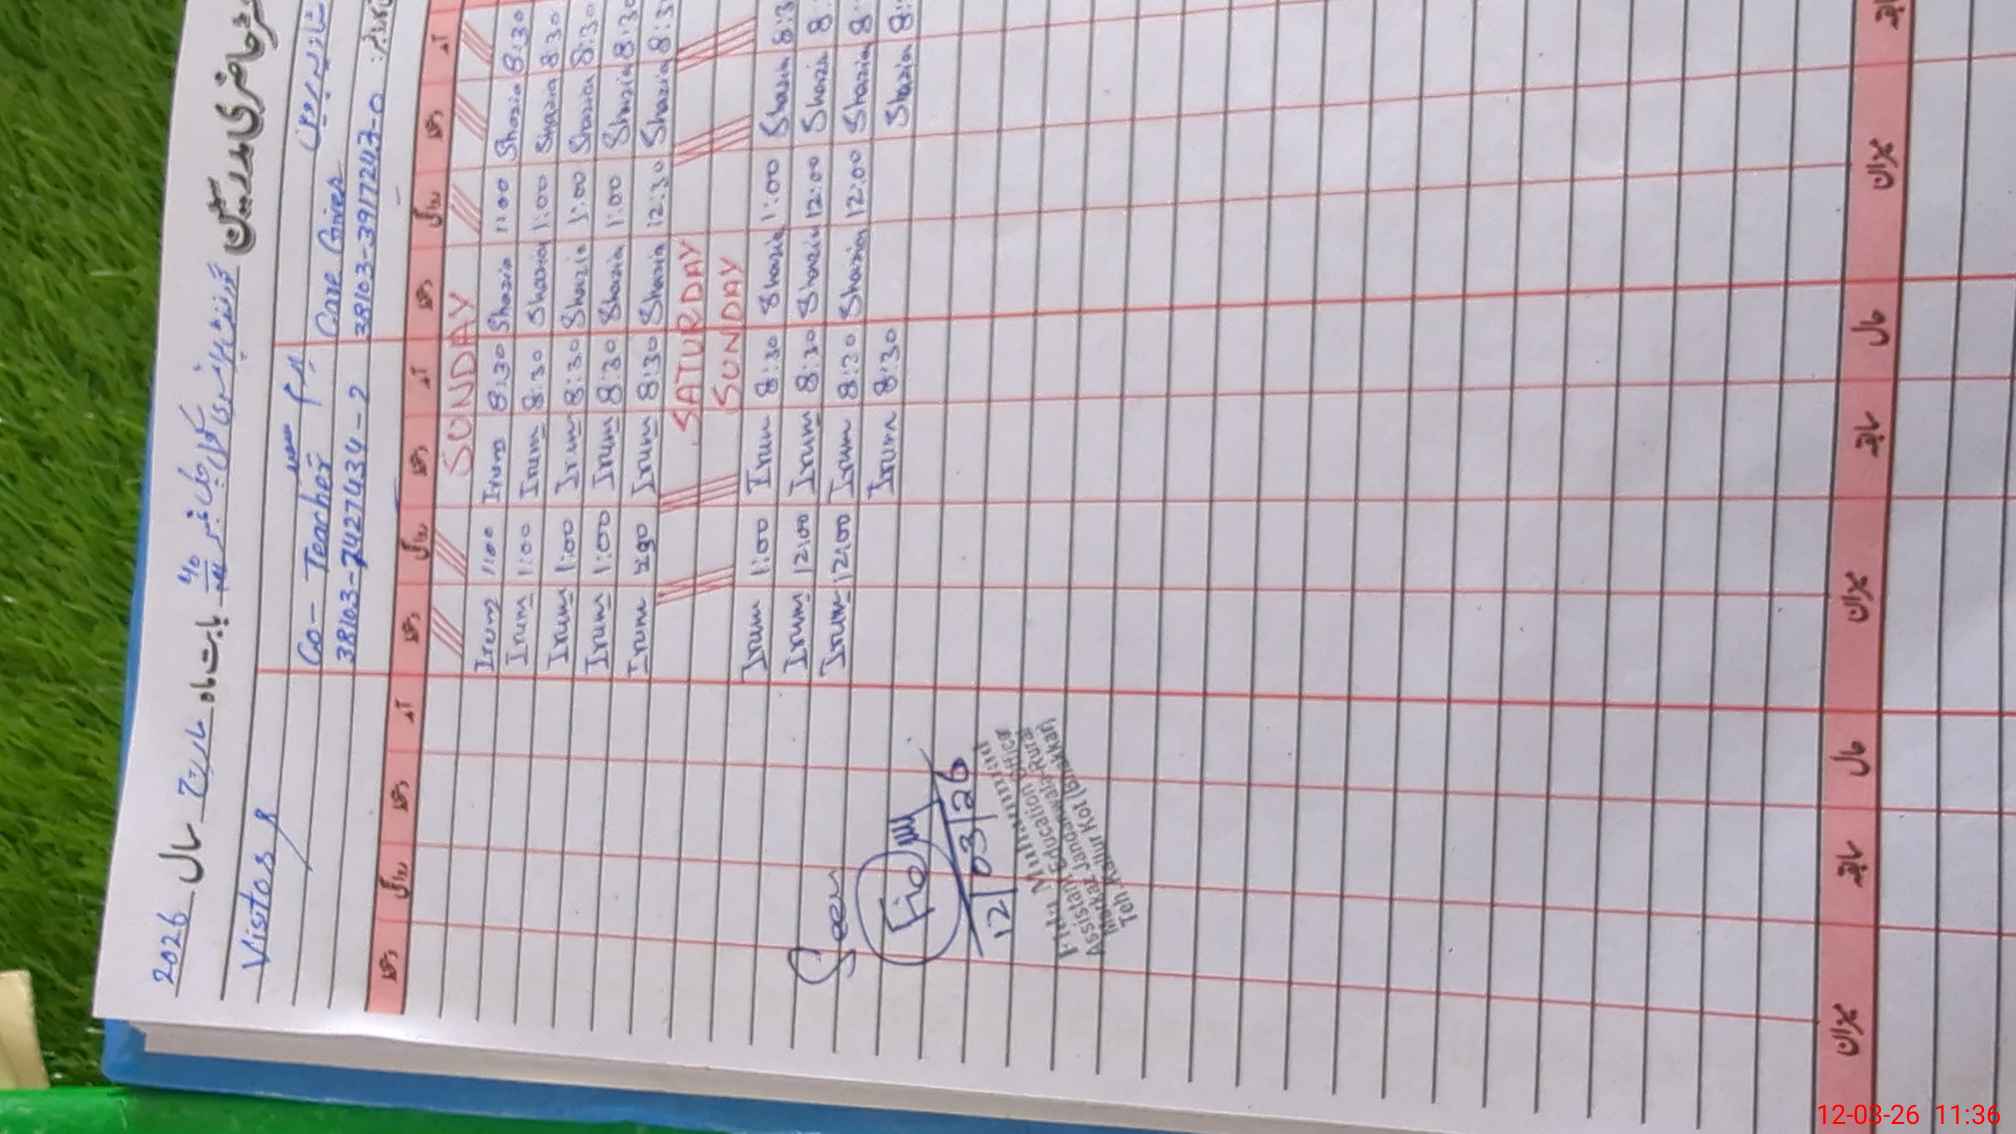 2026 سال مارچ بابت ماہ
Visitors
Co-Teacher
Care Giver
38103-7427434-2
38103-3917243-0
آمد دستخط روانگی دستخط آمد دستخط روانگی دستخط آمد دستخط روانگی دستخط
SUNDAY
Irum 1:00 Irum 8:30 Shazia 1:00 Shazia 8:30
Irum 1:00 Irum 8:30 Shazia 1:00 Shazia 8:30
Irum 1:00 Irum 8:30 Shazia 1:00 Shazia 8:30
Irum 1:00 Irum 8:30 Shazia 1:00 Shazia 8:30
Irum Irum 8:30 Shazia 12:30 Shazia 8:3
SATURDAY
SUNDAY
Irum 1:00 Irum 8:30 Shazia 1:00 Shazia 8:3
Irum 12:00 Irum 8:30 Shazia 12:00 Shazia 8
Irum 12:00 Irum 8:30 Shazia 12:00 Shazia 8
Irum 8:30 Shazia 8
Seen
12/03/26
Assistant Education Officer
Markaz Jandanwala-Rural
Teh.Kallur Kot (Bhakkar)
میزان سابقہ حال میزان سابقہ حال میزان سابقہ
12-03-26 11:36